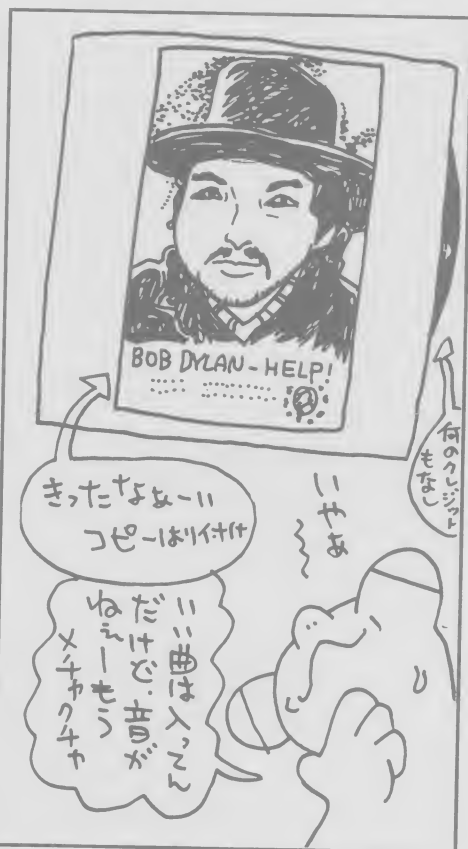 BOB DYLAN - HELP!
何のクレジット
もなし
きったなぁーい
コピーはりつけ
いやぁ
いい曲は入ってん
だけど、音が
ねぇーもう
メチャクチャ